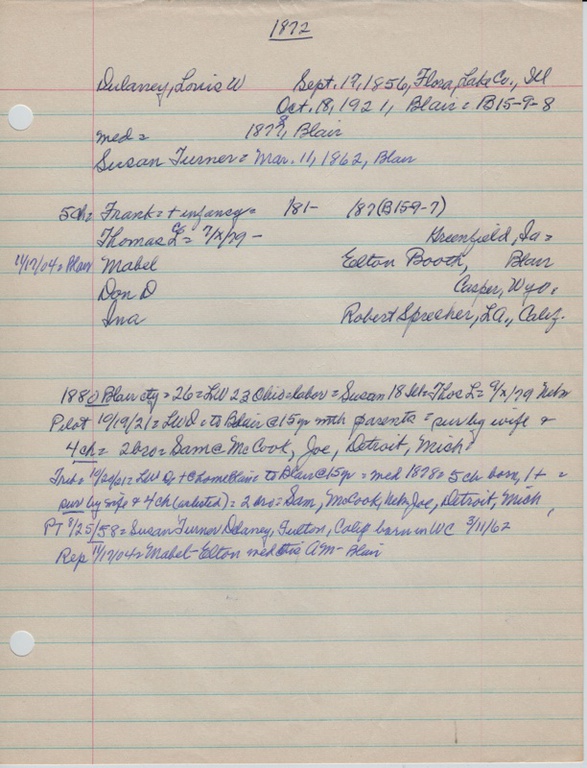 1872
Dulaney, Louis W Sept. 17, 1856, Flora, Lake Co., Ill
Oct. 18, 1921, Blair = B15-9-8
med = 1878, Blair
Susan Turner = Mar. 11, 1862, Blair
5ch = Frank = + infancy = 181- 187 (B15-9-7)
Thomas L = 7/x/79 - Greenfield, Ia =
11/17/04 = Blair Mabel Elton Booth, Blair
Don D Casper, Wyo.
Ina Robert Sprecher, LA., Calif.
1880 Blair cty = 26 = LW 23 Ohio = labor = Susan 18 = Thos L = 9/x/79 Nebr
Pilot 10/19/21 = LW D = to Blair @ 15 yr with parents = sur by wife &
4 ch = 2 bro = Sam @ McCook, Joe, Detroit, Mich
Trib = 10/20/21 = LW D + @ home Blair = to Blair @ 15 yr = med 1878 = 5 ch born, 1 + =
sur by wife & 4 ch (as listed) = 2 bro = Sam, McCook, Neb, Joe, Detroit, Mich,
PT 8/25/58 = Susan Turner Delaney, Fulton, Calif born in WC 3/11/62
Rep 11/17/04 = Mabel - Elton med this AM - Blair